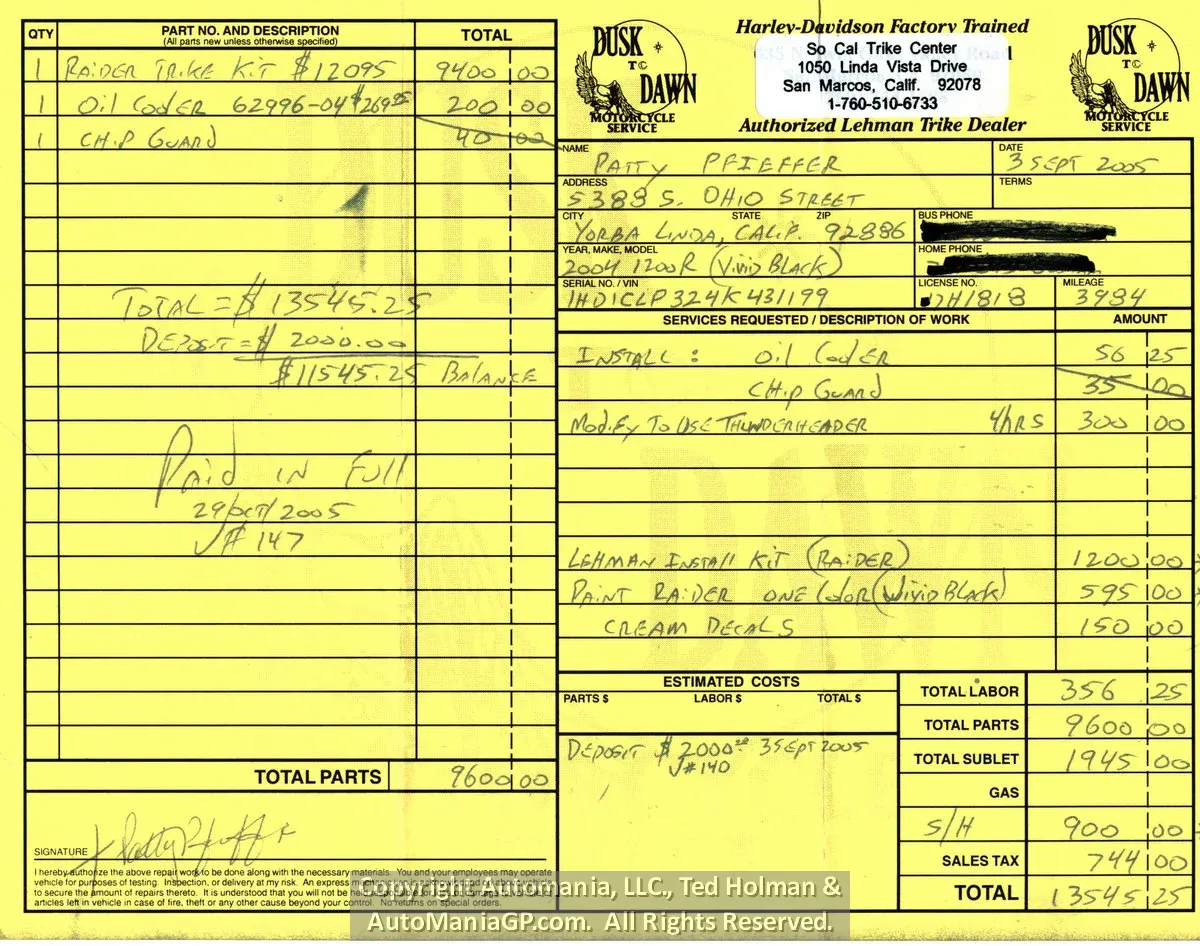 QTY PART NO. AND DESCRIPTION TOTAL
(All parts new unless otherwise specified)
1 RAIDER TRIKE KIT $12095 9400 00
1 Oil Cooler 62996-04 $269.95 200 00
1 CHIP GUARD 40 00
TOTAL = $ 13545.25
DEPOSIT = $ 2000.00
$11545.25 BALANCE
PAID IN FULL
29/OCT/2005
√# 147
TOTAL PARTS 9600 00
SIGNATURE Patty Pfieffer
I hereby authorize the above repair work to be done along with the necessary materials. You and your employees may operate
vehicle for purposes of testing. Inspection, or delivery at my risk. An express
to secure the amount of repairs thereto. It is understood that you will not be
articles left in vehicle in case of fire, theft or any other cause beyond your control. No returns on special orders.
DUSK
TO
DAWN
MOTORCYCLE
SERVICE
Harley-Davidson Factory Trained
So Cal Trike Center
1050 Linda Vista Drive
San Marcos, Calif. 92078
1-760-510-6733
Authorized Lehman Trike Dealer
DUSK
TO
DAWN
MOTORCYCLE
SERVICE
NAME PATTY PFIEFFER
DATE 3 SEPT 2005
ADDRESS 5388 S. OHIO STREET
TERMS
CITY STATE ZIP
YORBA LINDA, CALIF. 92886
BUS PHONE
YEAR, MAKE, MODEL
2004 1200R (Vivid BLACK)
HOME PHONE
SERIAL NO. / VIN
1HD1CLP324K431199
LICENSE NO.
17H1818
MILEAGE
3984
SERVICES REQUESTED / DESCRIPTION OF WORK AMOUNT
INSTALL : Oil Cooler 56 25
CHIP GUARD 35 00
Modify To USE THUNDERHEADER 4hRS 300 00
LEHMAN INSTALL KIT (RAIDER) 1200 00
PAINT RAIDER ONE Color (Vivid BLACK) 595 00
CREAM DECALS 150 00
ESTIMATED COSTS
PARTS $ LABOR $ TOTAL $
DEPOSIT $ 2000.00 3 SEPT 2005
√#140
TOTAL LABOR 356 25
TOTAL PARTS 9600 00
TOTAL SUBLET 1945 00
GAS
S/H 900 00
SALES TAX 744 00
TOTAL 13545 25
Copyright Automania, LLC., Ted Holman &
AutoManiaGP.com. All Rights Reserved.